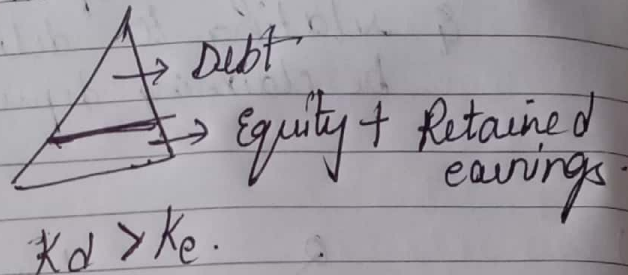 → Debt
→ Equity + Retained
earnings.
Kd > Ke.